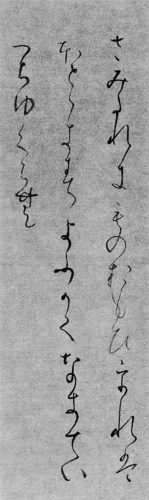 さみたれにものおもひをれは
ほとゝきすよふかくなきてい
つちゆくらむ